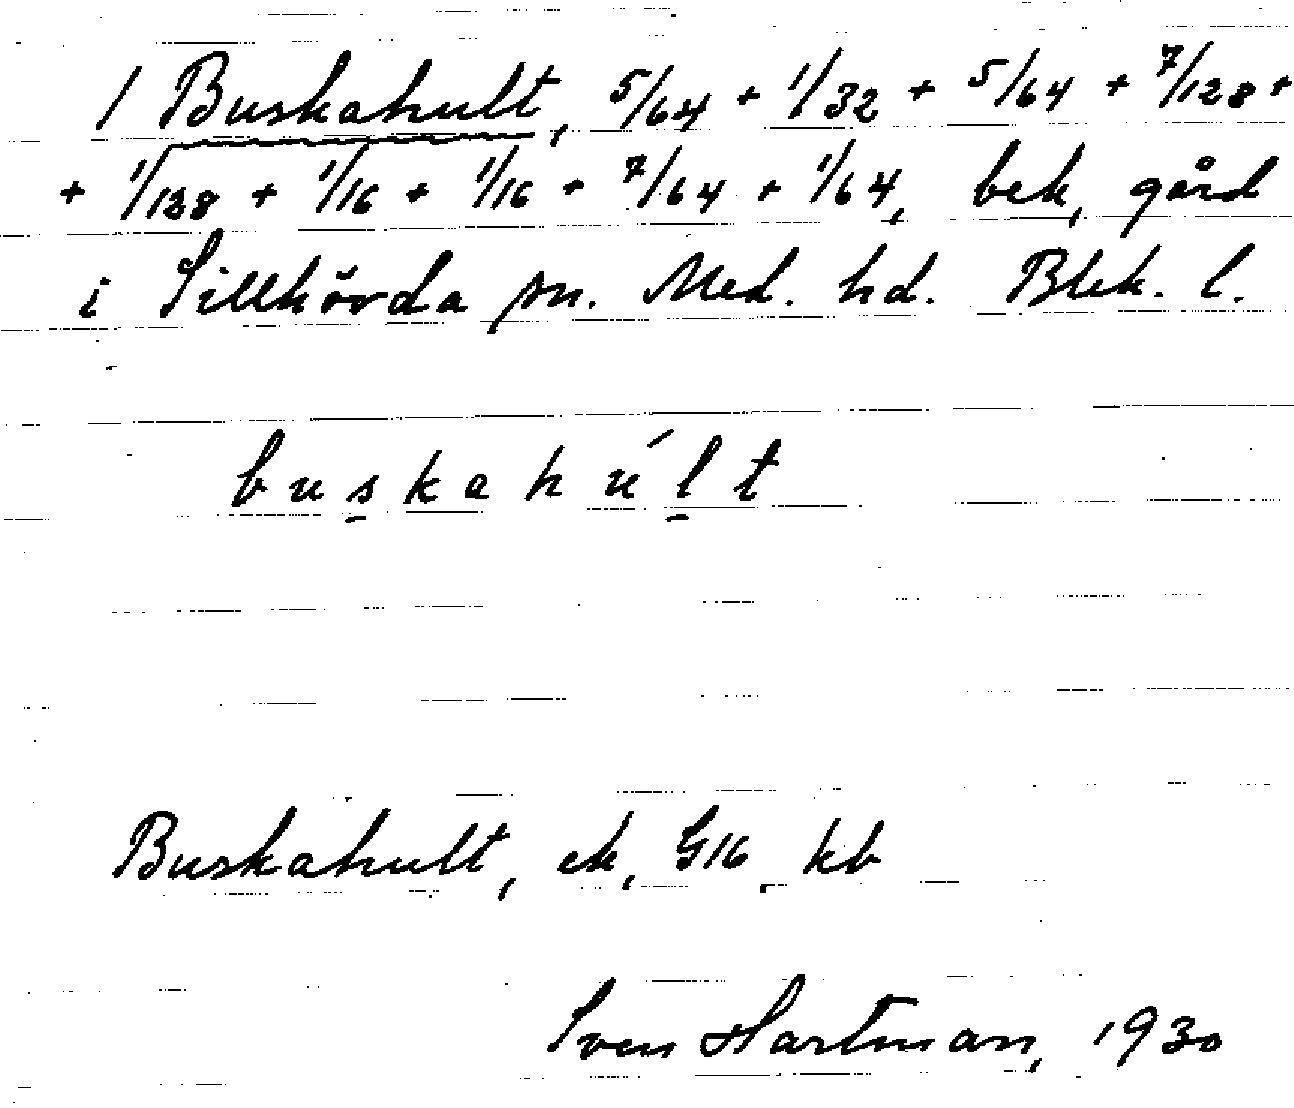 1 Buskahult, 5/64 + 1/32 + 5/64 + 7/128 +
+ 1/128 + 1/16 + 1/16 + 7/64 + 1/64, bek, gård
i Sillhövda sn. Med. hd. Blek. l.
buskahúlt
Buskahult, ek, G16, kb
Sven Hartman, 1930